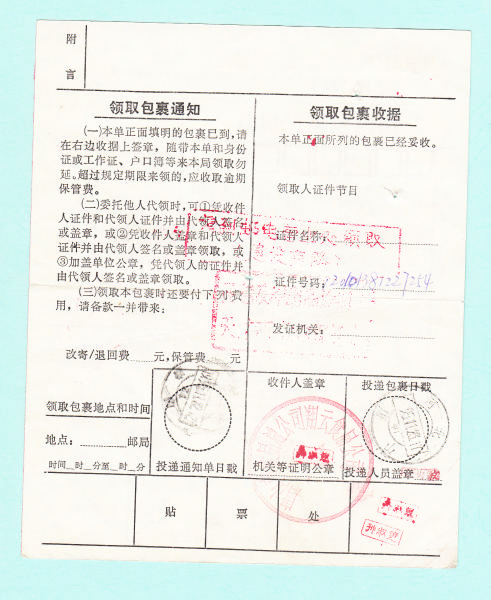 附
言
领取包裹通知
(一)本单正面填明的包裹已到,请
在右边收据上签章,随带本单和身份
证或工作证、户口簿等来本局领取勿
延。超过规定期限来领的,应收取逾期
保管费。
(二)委托他人代领时,可①凭收件
人证件和代领人证件并由代领人签名
或盖章,或②凭收件人盖章和代领人
证件并由代领人签名或盖章领取,或
③加盖单位公章,凭代领人的证件并
由代领人签名或盖章领取。
(三)领取本包裹时还要付下列费
用,请备款一并带来:
改寄/退回费 元,保管费 元
领取包裹地点和时间
地点: 邮局
时间 时 分至 时 分
投递通知单日戳
领取包裹收据
本单正面所列的包裹已经妥收。
领取人证件节目
证件名称:
领取
证件号码:
发证机关:
收件人盖章
机关等证明公章
投递包裹日戳
投递人员盖章
贴
票
处